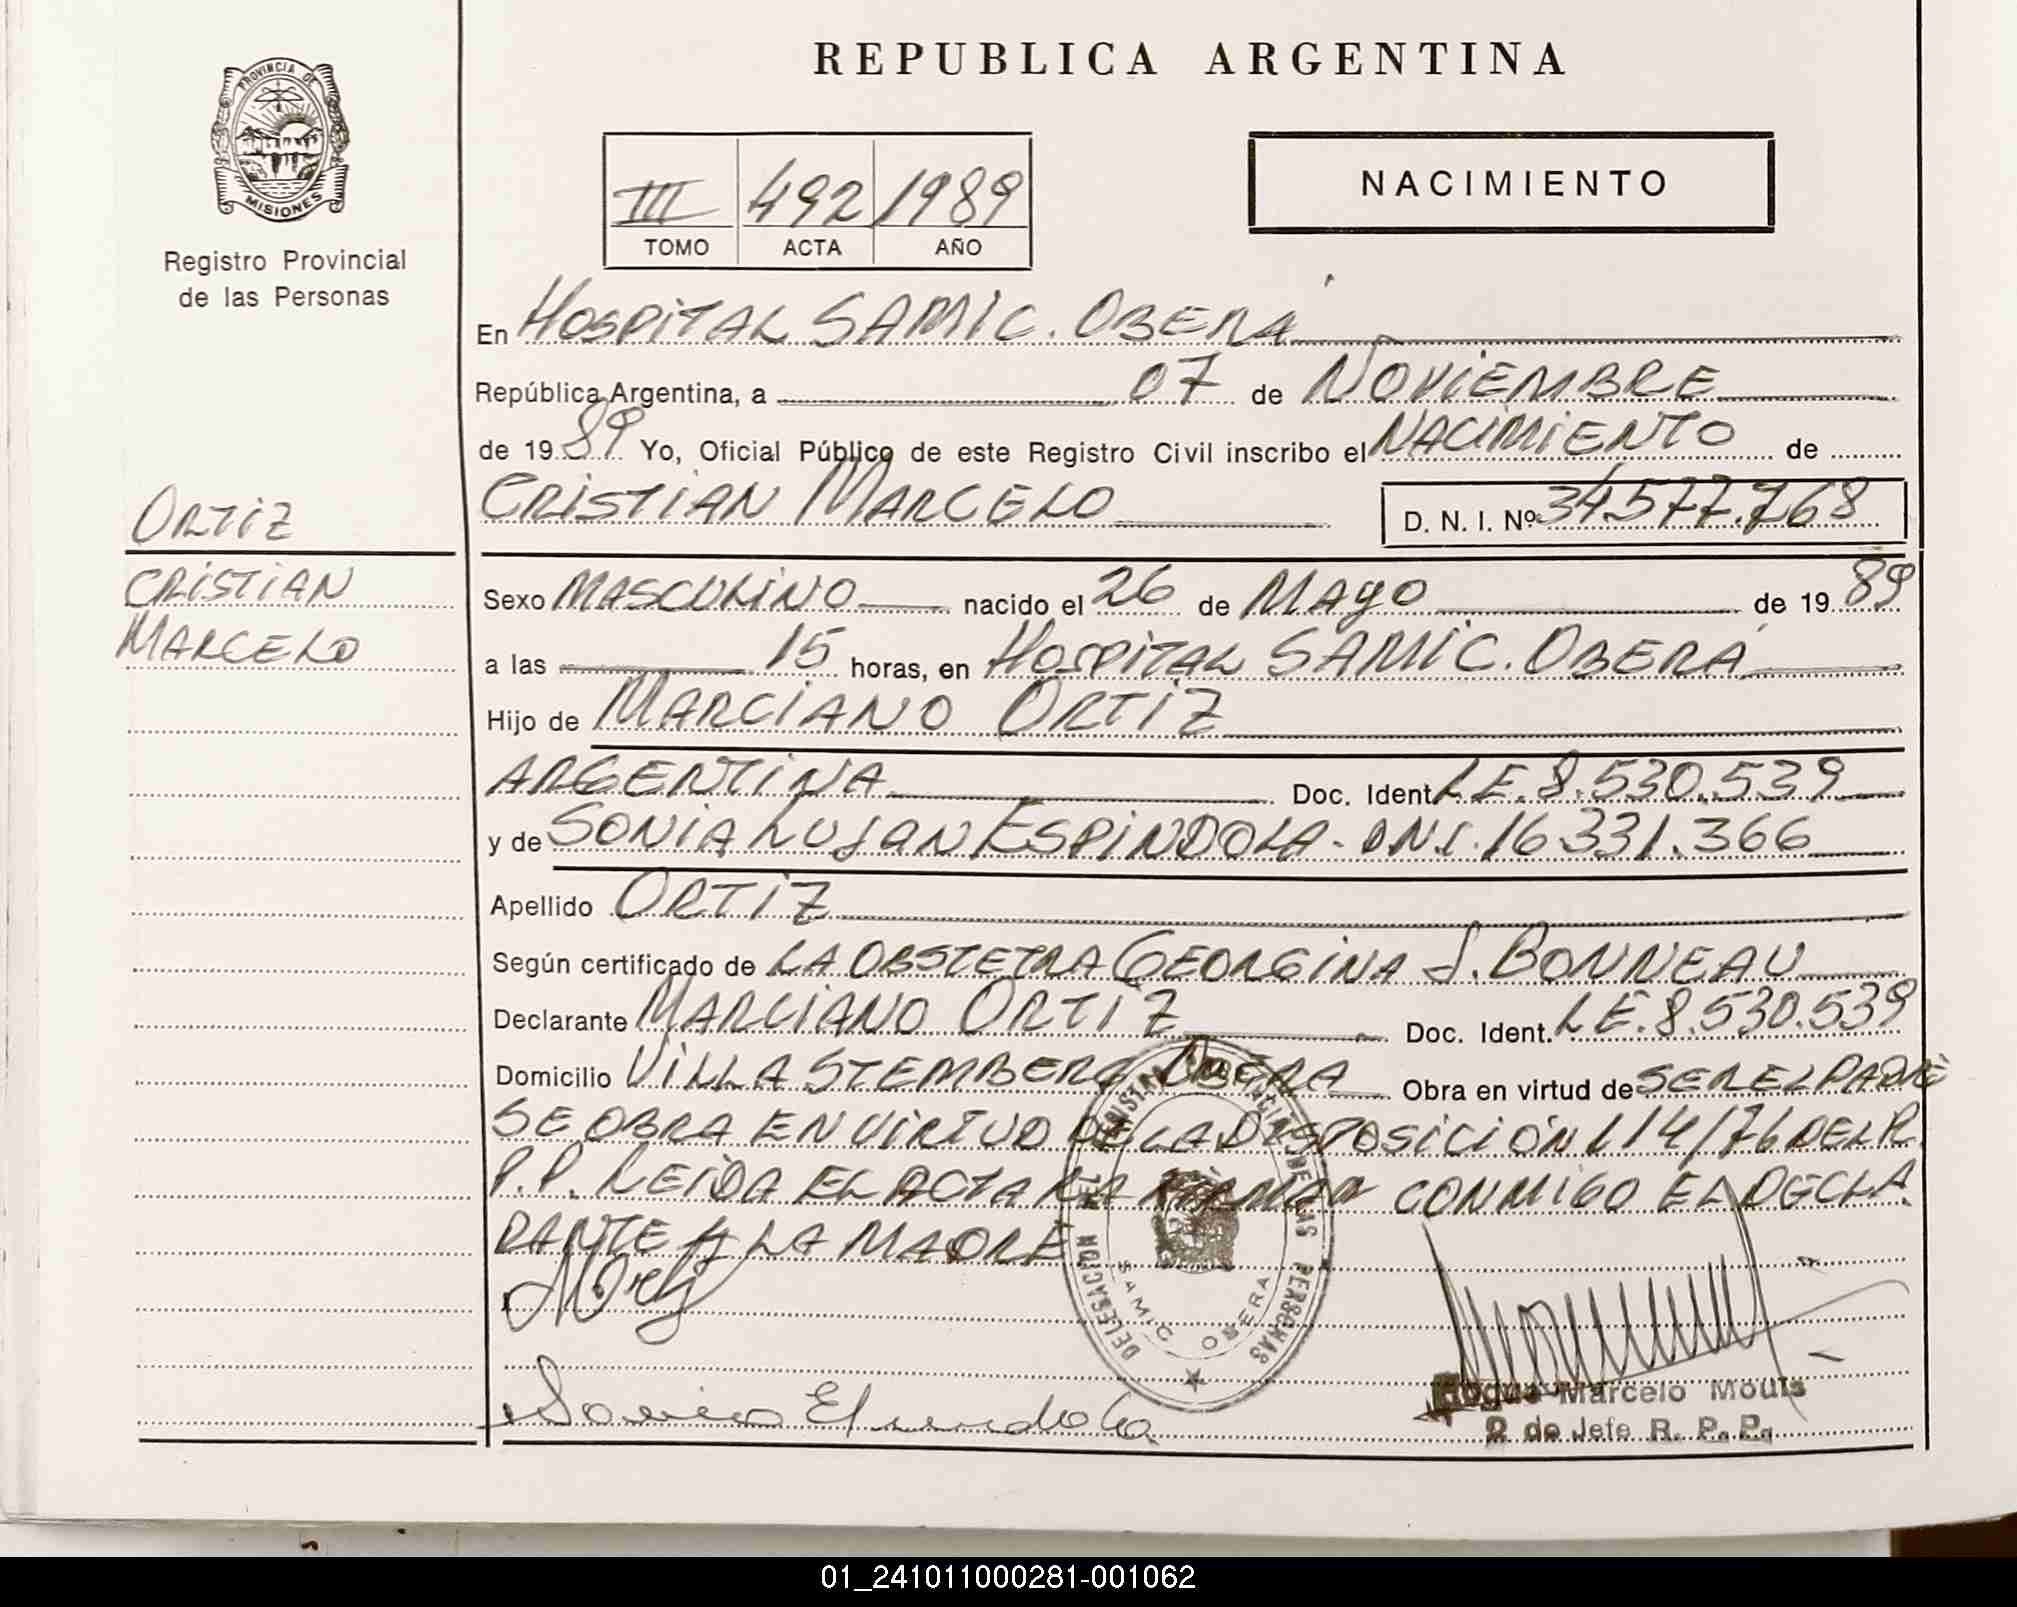 REPUBLICA ARGENTINA
PROVINCIA DE
MISIONES
Registro Provincial
de las Personas
III 492 1989
TOMO ACTA AÑO
NACIMIENTO
En HOSPITAL SAMIC. OBERÁ
República Argentina, a 07 de NOVIEMBRE
de 19 89 Yo, Oficial Público de este Registro Civil inscribo el NACIMIENTO de
CRISTIAN MARCELO D. N. I. Nº 34.577.768
ORTIZ
CRISTIAN
MARCELO
Sexo MASCULINO nacido el 26 de MAYO de 19 89
a las 15 horas, en HOSPITAL SAMIC. OBERÁ
Hijo de MARCIANO ORTIZ
ARGENTINA Doc. Ident. LE. 8.530.539
y de SONIA LUJAN ESPINDOLA - DNI. 16.331.366
Apellido ORTIZ
Según certificado de LA OBSTETRA GEORGINA S. BONNEAU
Declarante MARCIANO ORTIZ Doc. Ident. LE. 8.530.539
Domicilio VILLA STEMBERG OBERA Obra en virtud de SER EL PADRE
SE OBRA EN VIRTUD DE LA DISPOSICIÓN 114/76 DEL R.
P.P. LEIDA EL ACTA LA FIRMAN CONMIGO EL DECLA
RANTE Y LA MADRE
DELEGACION DEL REGISTRO PROVINCIAL DE LAS PERSONAS
SAMIC OBERA
Sonia Espindola
Roque Marcelo Mouls
2 do Jefe R. P. P.
01_241011000281-001062